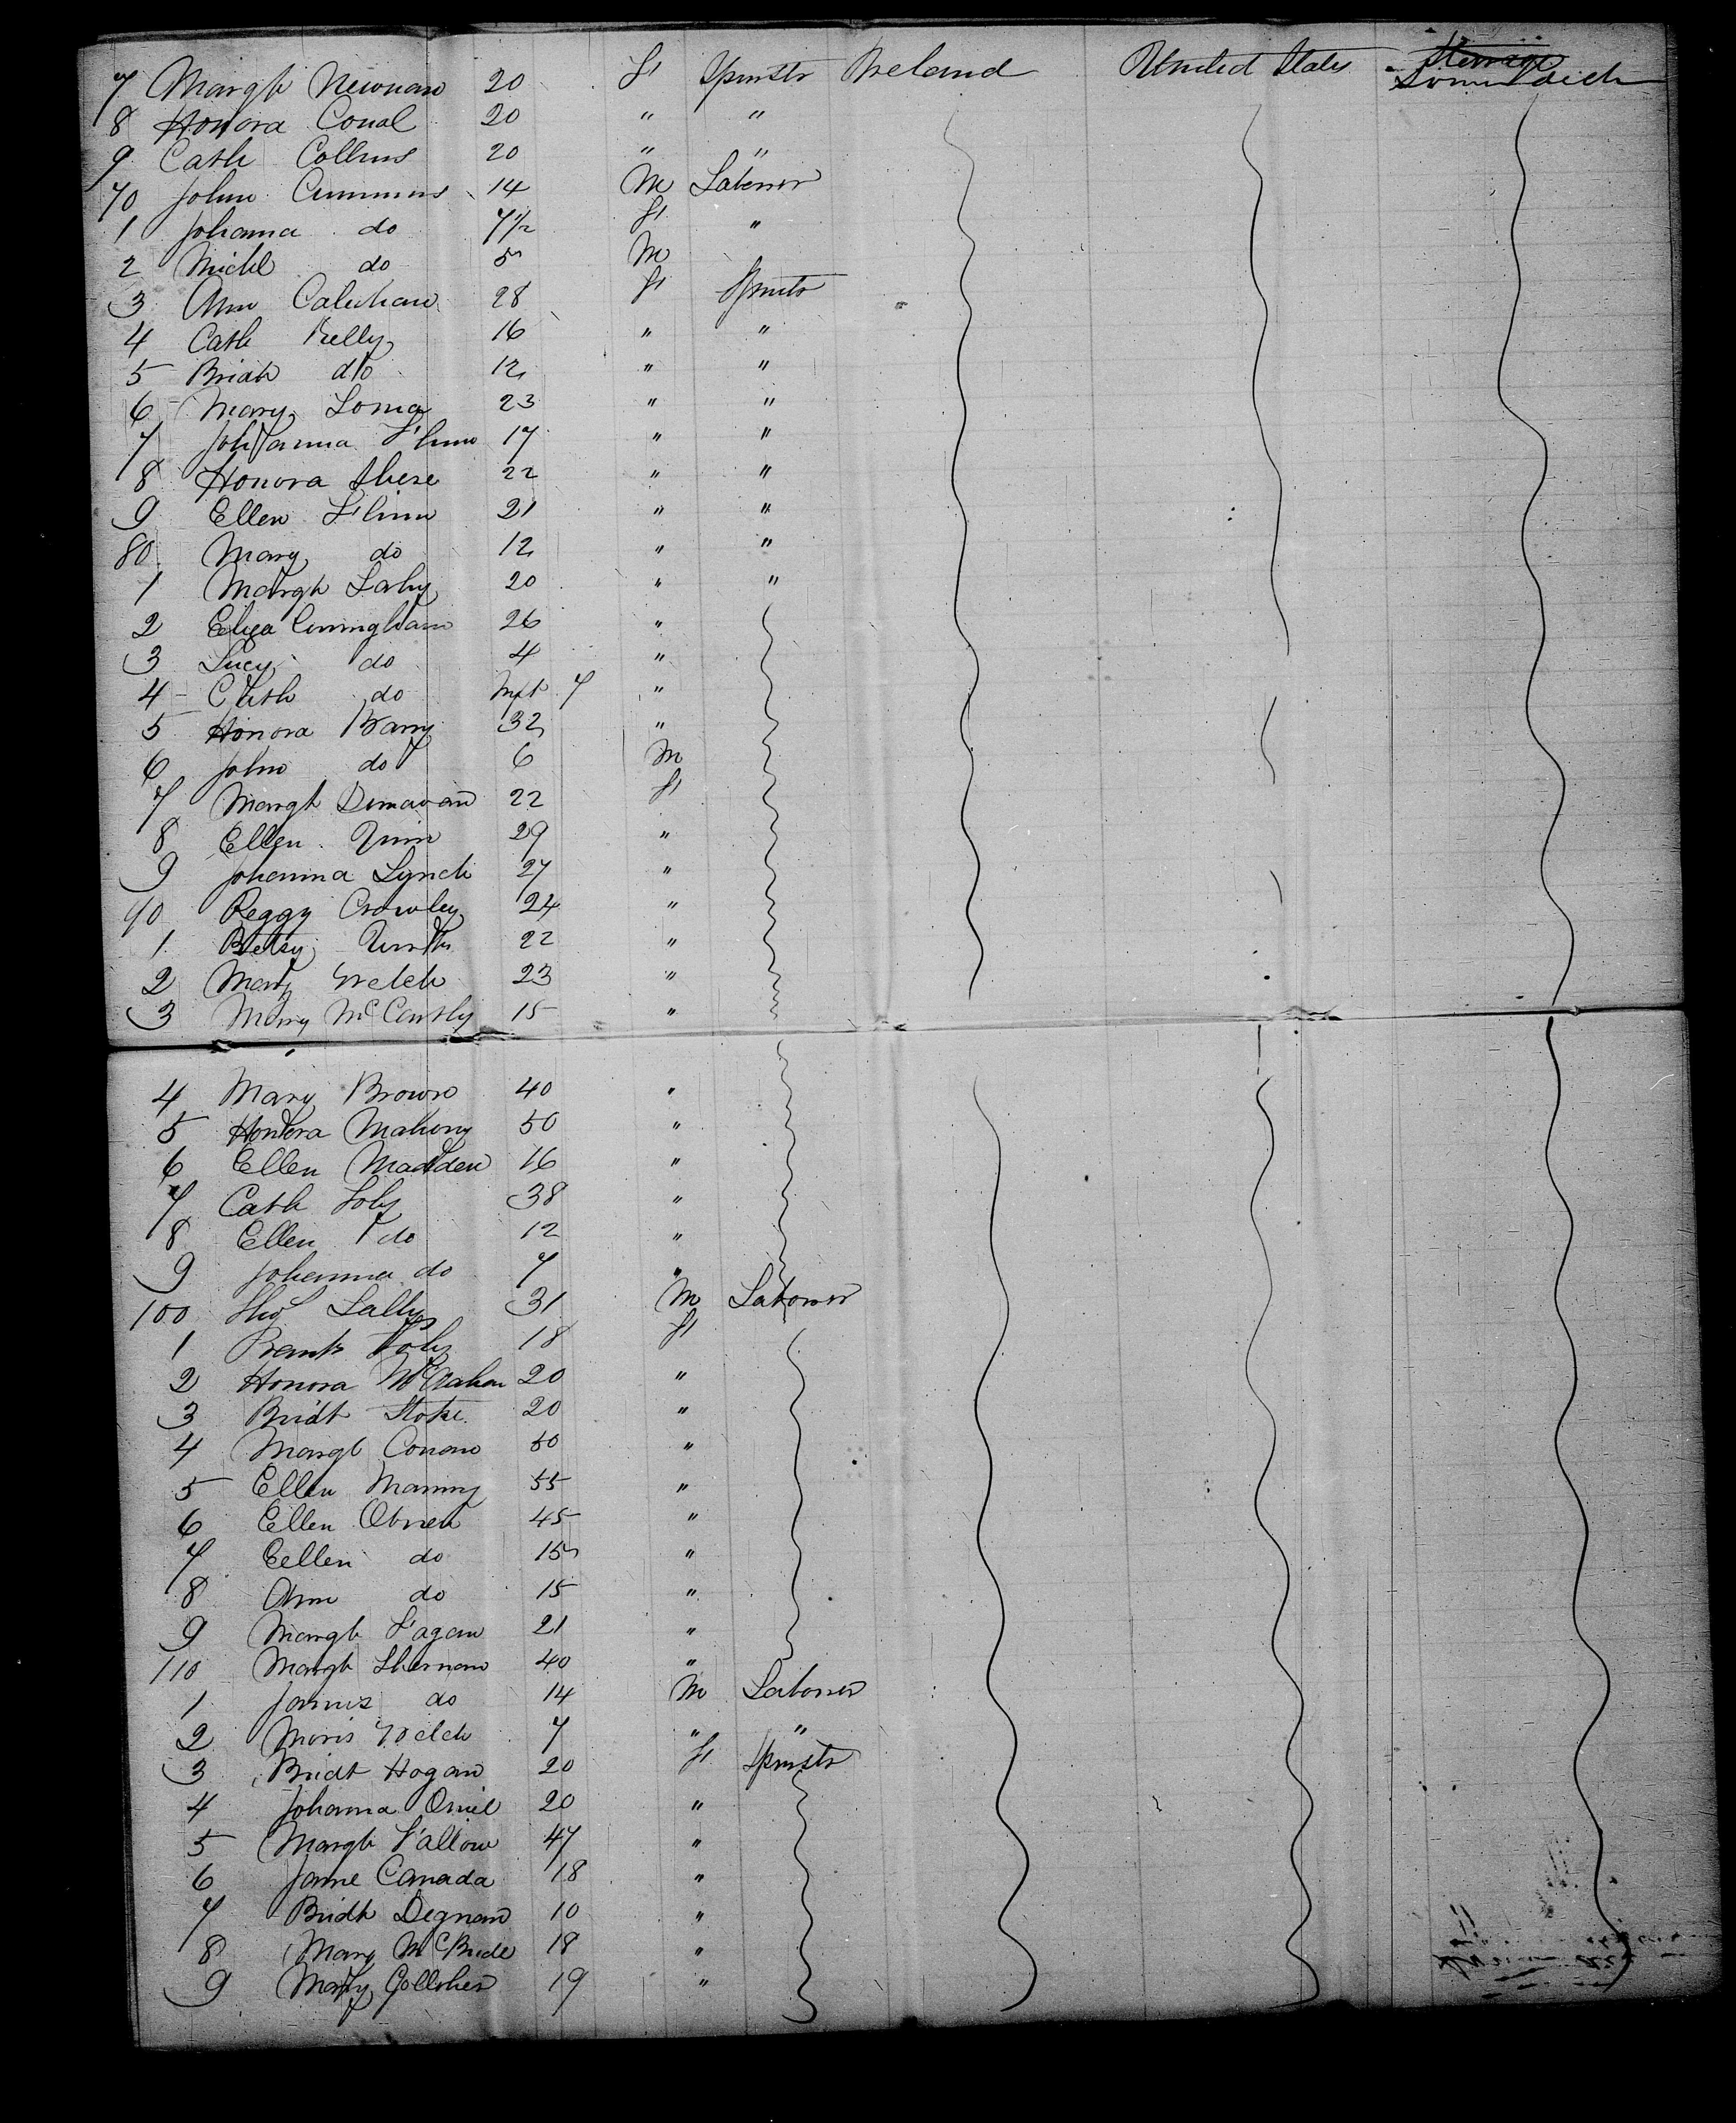 7 Margt Newnan 20 F Spinstr Ireland United States Steerage
8 Honora Conal 20 " "
9 Cath Collins 20 " "
70 John Cummins 14 M Laborer
1 Johanna do 7 1/2 F "
2 Michl do 5 M
3 Ann Calahan 28 F Spinstr
4 Cath Kelly 16 " "
5 Bridt do 12 " "
6 Mary 23 " "
7 Johanna Flinn 17 " "
8 Honora Shese 22 " "
9 Ellen Flinn 21 " "
80 Mary do 12 " "
1 Margt Lahy 20 " "
2 Eliza Cuningham 26 "
3 Lucy do 4 "
4 Cath do 7 "
5 Honora Barry 32 "
6 John do 6 M
7 Margt Donavan 22 F
8 Ellen Quin 29 "
9 Johanna Lynch 27 "
90 Peggy Crowley 24 "
1 Betsy 22 "
2 Mary Welch 23 "
3 Mary McCarthy 15 "
4 Mary Brown 40 "
5 Honora Mahony 50 "
6 Ellen Madden 16 "
7 Cath Foly 38 "
8 Ellen do 12 "
9 Johanna do 7 "
100 Thos Lally 31 M Laborer
1 Foly 18 F
2 Honora 20 "
3 Bridt Stoke 20 "
4 Margt Conan 50 "
5 Ellen Maning 55 "
6 Ellen Obrien 45 "
7 Eellen do 15 "
8 Ann do 15 "
9 Margt Fagan 21 "
110 Margt 40 "
1 James do 14 M Laborer
2 Moris Welch 7 " "
3 Bridt Hogan 20 F Spinstr
4 Johanna Oniel 20 "
5 Margt Fallow 47 "
6 Jane Canada 18 "
7 Bridt Degnan 10 "
8 Mary McBride 18 "
9 Mary Golloher 19 "